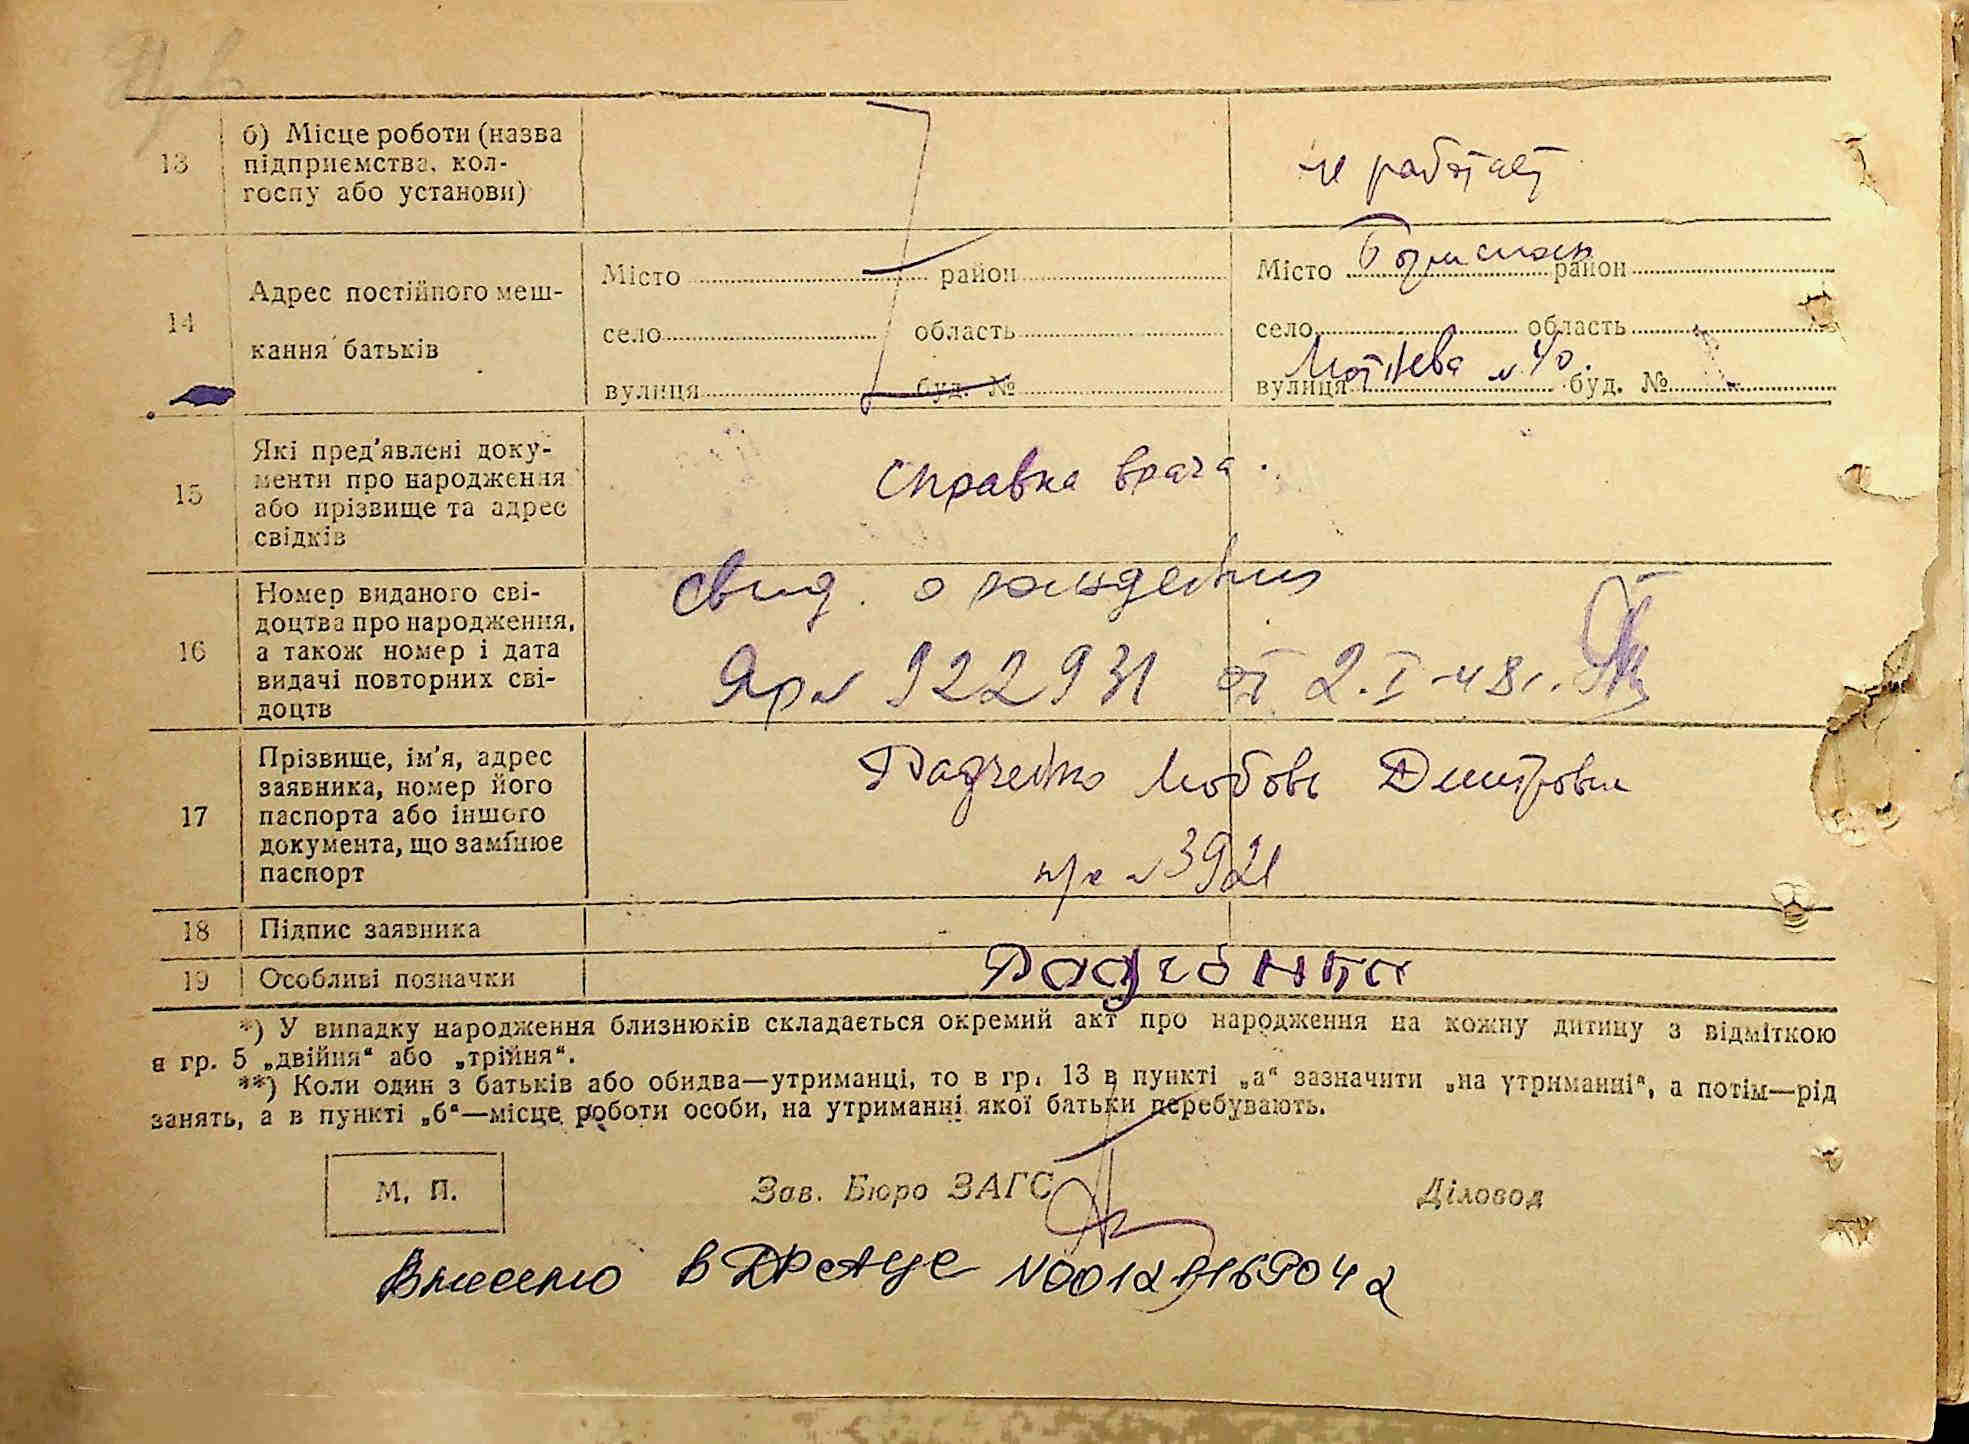 13 б) Місце роботи (назва
підприємства, кол-
госпу або установи)
не работает
14 Адрес постійного меш-
кання батьків
Місто район
село область
вулиця буд. №
Місто район
село область
вулиця буд. №
№ 40.
15 Які пред'явлені доку-
менти про народження
або прізвище та адрес
свідків
Справка врача.
16 Номер виданого сві-
доцтва про народження,
а також номер і дата
видачі повторних сві-
доцтв
Свид. о рождении
№ 922931 от 2.I-48г.
17 Прізвище, ім'я, адрес
заявника, номер його
паспорта або іншого
документа, що замінює
паспорт
Радченко Любовь Дмитровна
№ 3921
18 Підпис заявника
19 Особливі позначки
Радченка
*) У випадку народження близнюків складається окремий акт про народження на кожну дитину з відміткою
в гр. 5 „двійня“ або „трійня“.
**) Коли один з батьків або обидва—утриманці, то в гр. 13 в пункті „а“ зазначити „на утриманні“, а потім—рід
занять, а в пункті „б“—місце роботи особи, на утриманні якої батьки перебувають.
М. П. Зав. Бюро ЗАГС Діловод
Внесено в ДРАЦС